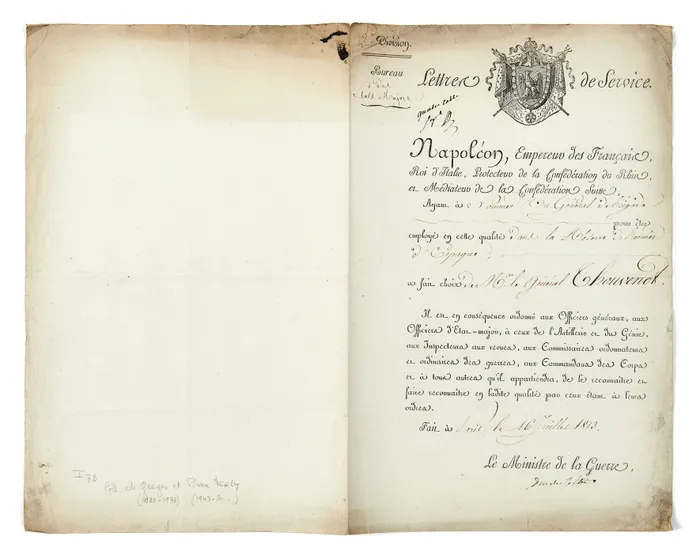 Division.
Bureau
d'Etat
Lettres de Service.
Napoléon, Empereur des Français,
Roi d'Italie, Protecteur de la Confédération du Rhin,
et Médiateur de la Confédération Suisse,
Ayant à nommer un Général de brigade
pour être
employé en cette qualité dans la Réserve de l'armée
d'Espagne
a fait choix de Mr. le Général Thouvenot.
Il est en conséquence ordonné aux Officiers généraux, aux
Officiers d'Etat-major, à ceux de l'Artillerie et du Génie,
aux Inspecteurs aux revues, aux Commissaires ordonnateurs
et ordinaires des guerres, aux Commandans des Corps
et à tous autres qu'il appartiendra, de le reconnaître et
faire reconnaître en ladite qualité par ceux étant à leurs
ordres.
Fait à le 16 Juillet 1813.
Le Ministre de la Guerre,
I 78
de Georges et